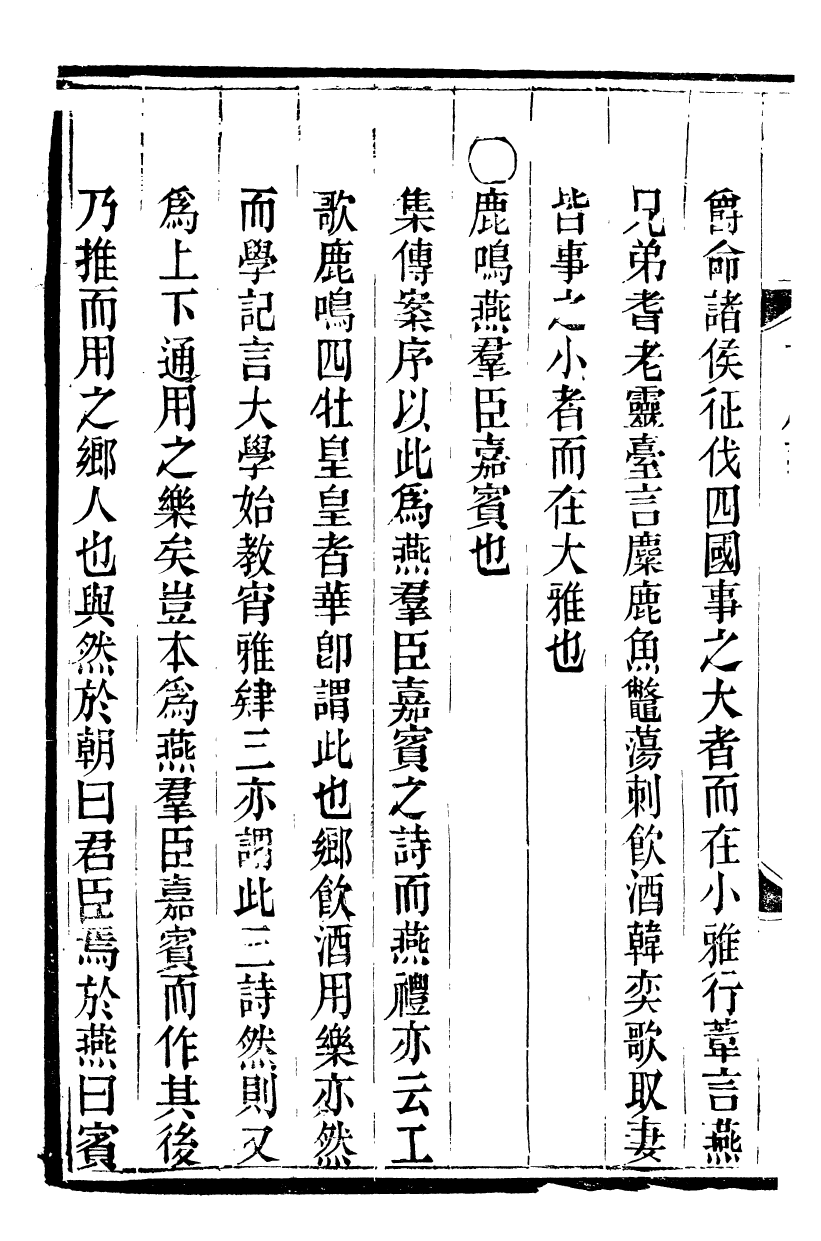 爵命諸侯征伐四國事之大者而在小雅行葦言燕
兄弟耆老靈臺言麋鹿魚鼈蕩刺飲酒韓奕歌取妻
皆事之小者而在大雅也
〇鹿鳴燕羣臣嘉賓也
集傳案序以此爲燕羣臣嘉賓之詩而燕禮亦云工
歌鹿鳴四牡皇皇者華卽謂此也鄉飲酒用樂亦然
而學記言大學始教宵雅肄三亦謂此三詩然則又
爲上下通用之樂矣豈本爲燕羣臣嘉賓而作其後
乃推而用之鄉人也與然於朝曰君臣焉於燕曰賓